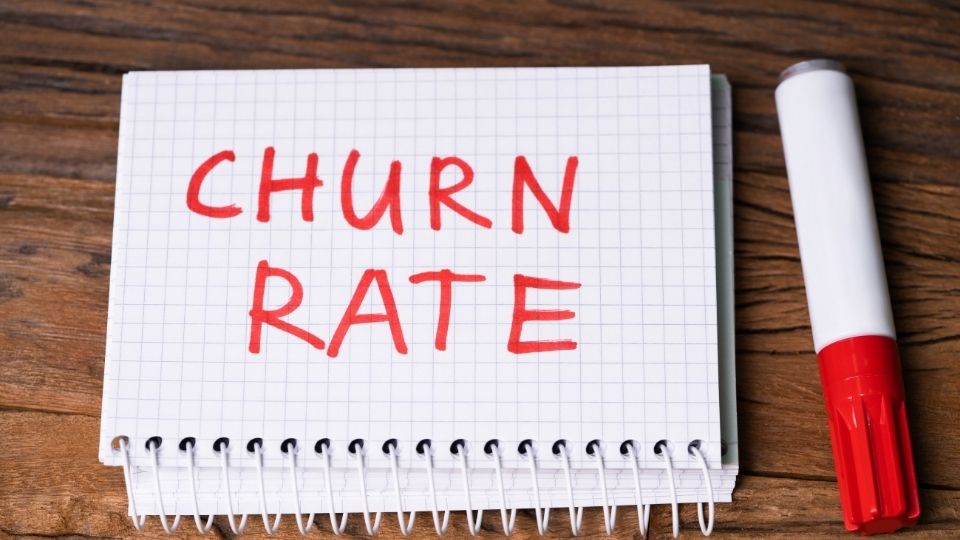 CHURN
RATE